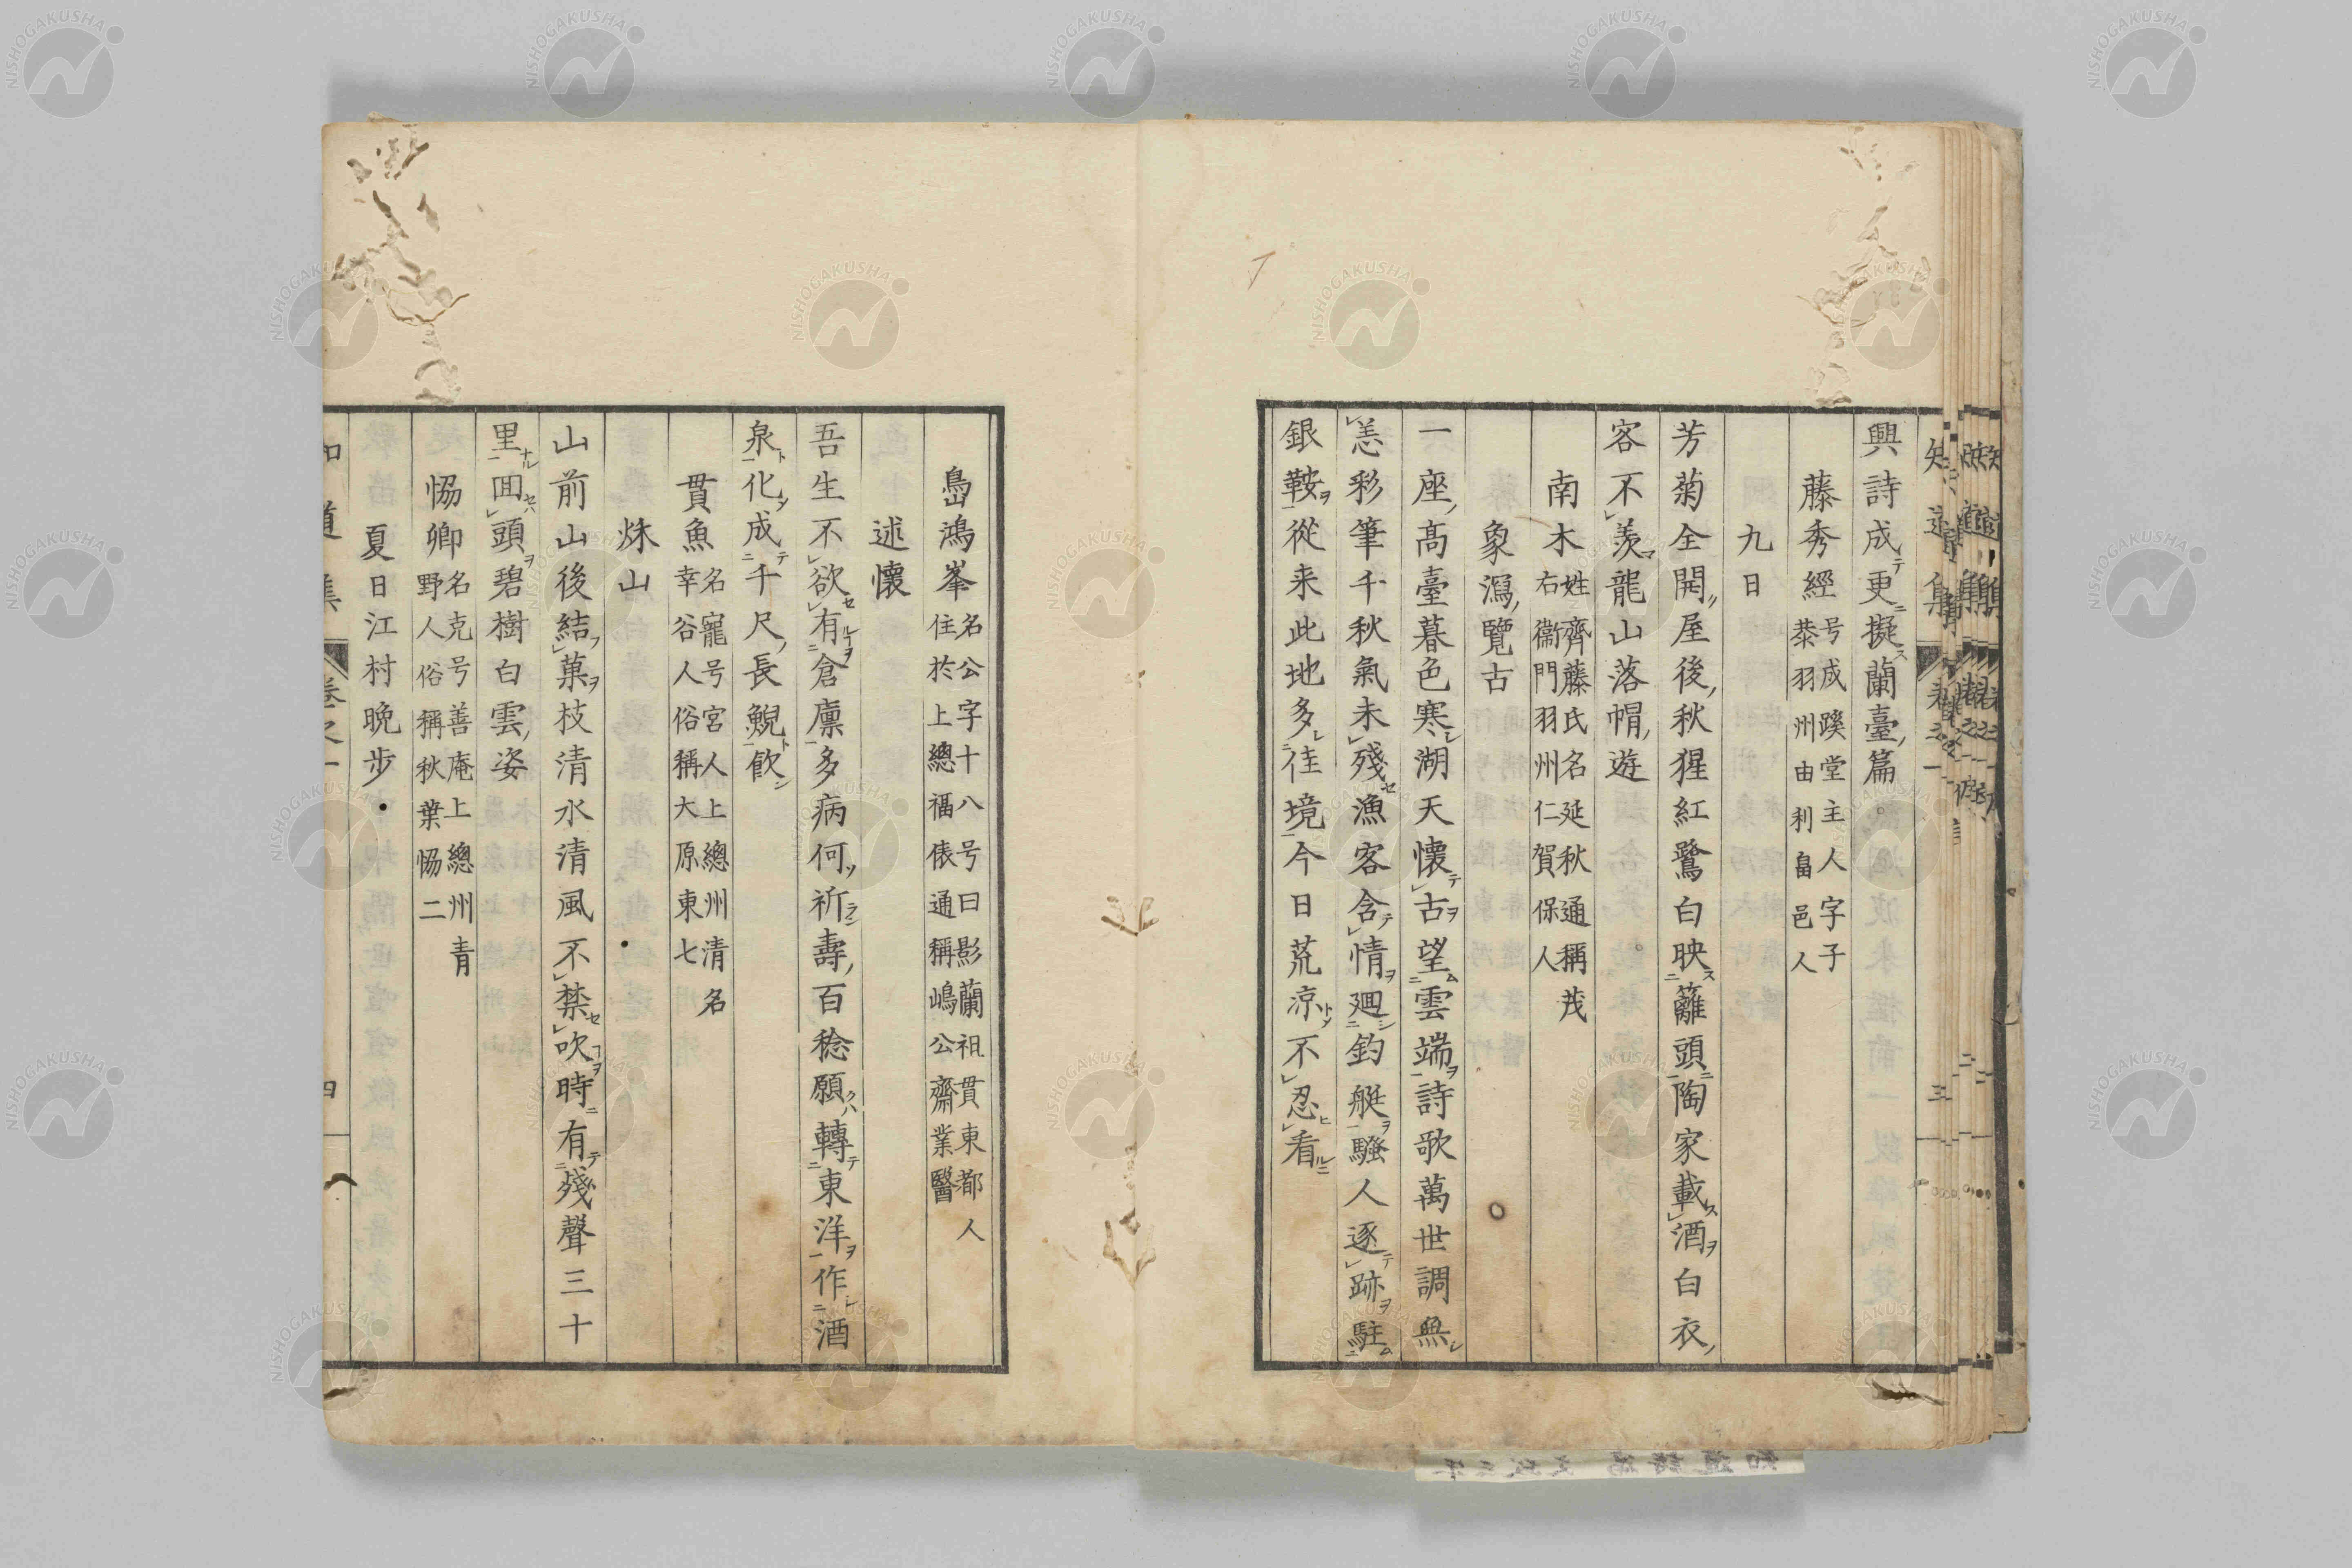 興詩成更擬蘭臺篇。
藤秀經 号成蹊堂主人字子
恭羽州由利畠邑人
九日
芳菊全開屋後秋猩紅鷺白映籬頭陶家載酒白衣
客不羨龍山落帽遊
南木 姓齊藤氏名延秋通稱茂
右衞門羽州仁賀保人
象潟覽古
一座高臺暮色寒湖天懷古望雲端詩歌萬世調無
恙彩筆千秋氣未殘漁客含情廻釣艇騷人逐跡駐
銀鞍從来此地多佳境今日荒凉不忍看
嶌鴻峯 名公字十八号曰影蘭祖貫東都人
住於上總福俵通稱嶋公齋業醫
述懷
吾生不欲有倉廩多病何祈壽百稔願轉東洋作酒
泉化成千尺長鯢飮
貫魚 名寵号宮人上總州清名
幸谷人俗稱大原東七
烌山
山前山後結菓枝清水清風不禁吹時有殘聲三十
里囬頭碧樹白雲姿
恊卿 名克号善庵上總州青
野人俗稱秋葉恊二
夏日江村晩步
知道集 卷之一 四